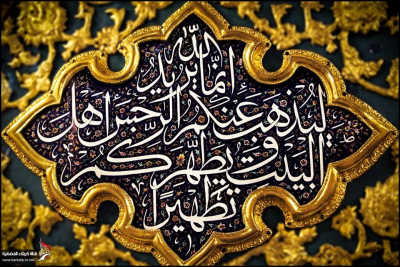 إنما يريد الله
ليذهب عنكم الرجس أهل
البيت ويطهركم
تطهيرا
قناة كربلاء الفضائية
www.karbala-tv.net